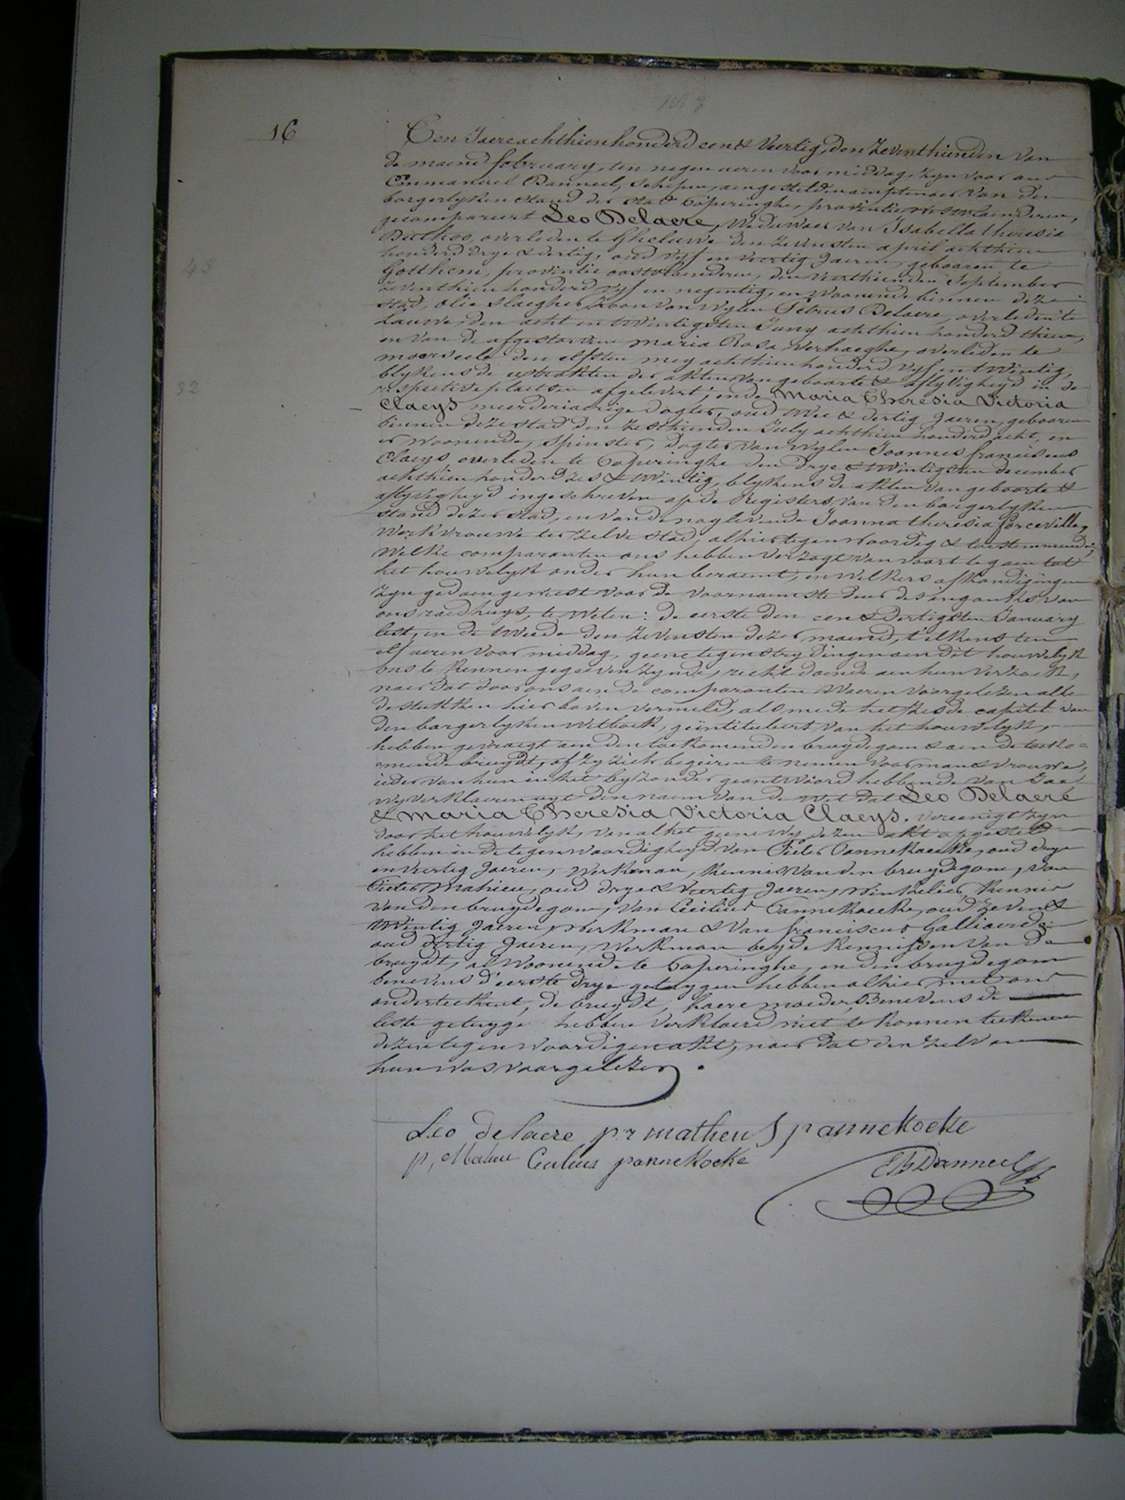 16
Een Jaere achthien honderd een & Veertig, den Zeventhienden van
de maend february, ten negen uren voor middag, zyn voor ons
Emmanuel Banneel, Schepen, aengesteld en amptenaer van den
borgerlyken stand der stad Poperinghe, provintie westvlaenderen,
gecompareert Leo Delaere, Weduwaer van Isabella theresia
overleden te Gheluwe den zevensten april achthien
honderd drye & dertig, oud vyf en veertig Jaeren, gebooren te
Gotthem, provintie oostvlaenderen, den veerthienden September
zeventhien honderd vyf en negentig, en Woonende binnen deze
stad, olie slaegher, Zoon van Wylen Petrus Delaere, overleden te
Lauwe, den acht en twintigsten Juny achthien honderd thien,
en van de afgestorvene maria Rosa Verhaeghe, overleden te
moorseele den elfsten mey achthien honderd vyf en twintig,
blykens de extrakten der akten van geboorte & aflyvigheyd in de
respective plaetsen afgelevert; ende Maria Theresia Victoria
Claeys meerderjaerige dogter, oud twee & dertig Jaeren, gebooren
binnen deze stad den zesthienden July achthien honderd acht, en
er Woonende, Spinster, dogter van Wylen Joannes franciscus
Claeys, overleden te Poperinghe den drye & twintigsten december
achthien honderd zes & twintig, blykens de akten van geboorte &
aflyvigheyd ingeschreven op de Registers van den borgerlyken
stand dezer stad, en van de naglevende Joanna theresia forcevilley
Werkvrouwe ter zelve stad, alhier tegenwoordig & toestemmende;
Welke comparanten ons hebben verzogt van voort te gaen tot
het houwelyk onder hun beraemt, en welkers afkondigingen
zyn gedaen geweest voor de voornaemste deur des ingangs van
ons raedhuys, te Weten: de eerste den een & dertigsten January
lest, en de tweede den zevensten dezer maend, telkens ten
elf uren voor middag, geene tegenstrydingen aen dit houwelyk
ons te kennen gegeven zynde, recht doende aen hun verzoek,
naer dat door ons aen de comparanten Waeren voorgelezen alle
de stukken hier boven vermeld, als mede het zesde capitel van
den borgerlyken Wetboek, geïntituleert van het houwelyk,
hebben gevraegt aen den toekomenden bruydegom & aen de toeko=
mende bruydt, of zy zich begeiren te nemen voor man & vrouwe,
ieder van hun in het byzonder geantwoord hebbende van Jae
Wy verklaeren uyt den naem van de Wet dat Leo Delaere
& Maria Theresia Victoria Claeys, vereenigt zyn
door het houwelyk, van al het geene wy dezen akt opgesteld
hebben in de tegenwoordigheyd van Pieter Pannekoecke, oud drye
en veertig Jaeren, Werkman, kennis van den bruydegom, van
Pieter Mahieu, oud drye & veertig Jaeren, Winkelier, kennis
van den bruydegom, van Ceciliis Pannekoecke, oud zeven &
twintig Jaeren, Werkman & van franciscus Galliaerde
oud dertig Jaeren, Werkman beyde kennissen van de
bruydt, al Woonende te Poperinghe, en den bruydegom
benevens d'eerste drye getuygen hebben alhier met ons
onderteekent, de bruydt, haere moeder, Benevens de
leste getuyge hebben verklaerd niet te konnen teekenen
dezen tegenwoordigen akt, naer dat den zelven
hun was voorgelezen.
Leo delaere pr matheu S pannekoeke
p, Mahieu Ceulius pannekoeke
EBanneel